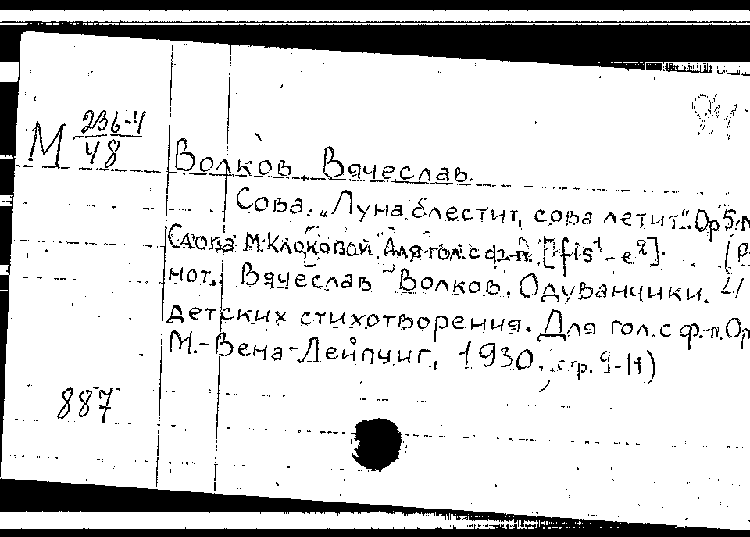 М 236-4
48
Волков, Вячеслав.
Сова. „Луна блестит, сова летит". Ор 5.
Слова М. Клоковой. Для гол. с ф-п. [fis¹-e²].
нот.: Вячеслав Волков. Одуванчики.
детских стихотворения. Для гол. с ф-п. Ор
М.-Вена-Лейпциг, 1930, стр. 9-11)
887